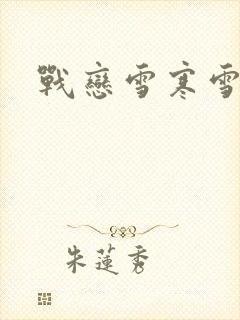 戰戀雪寒雪
朱蓮秀